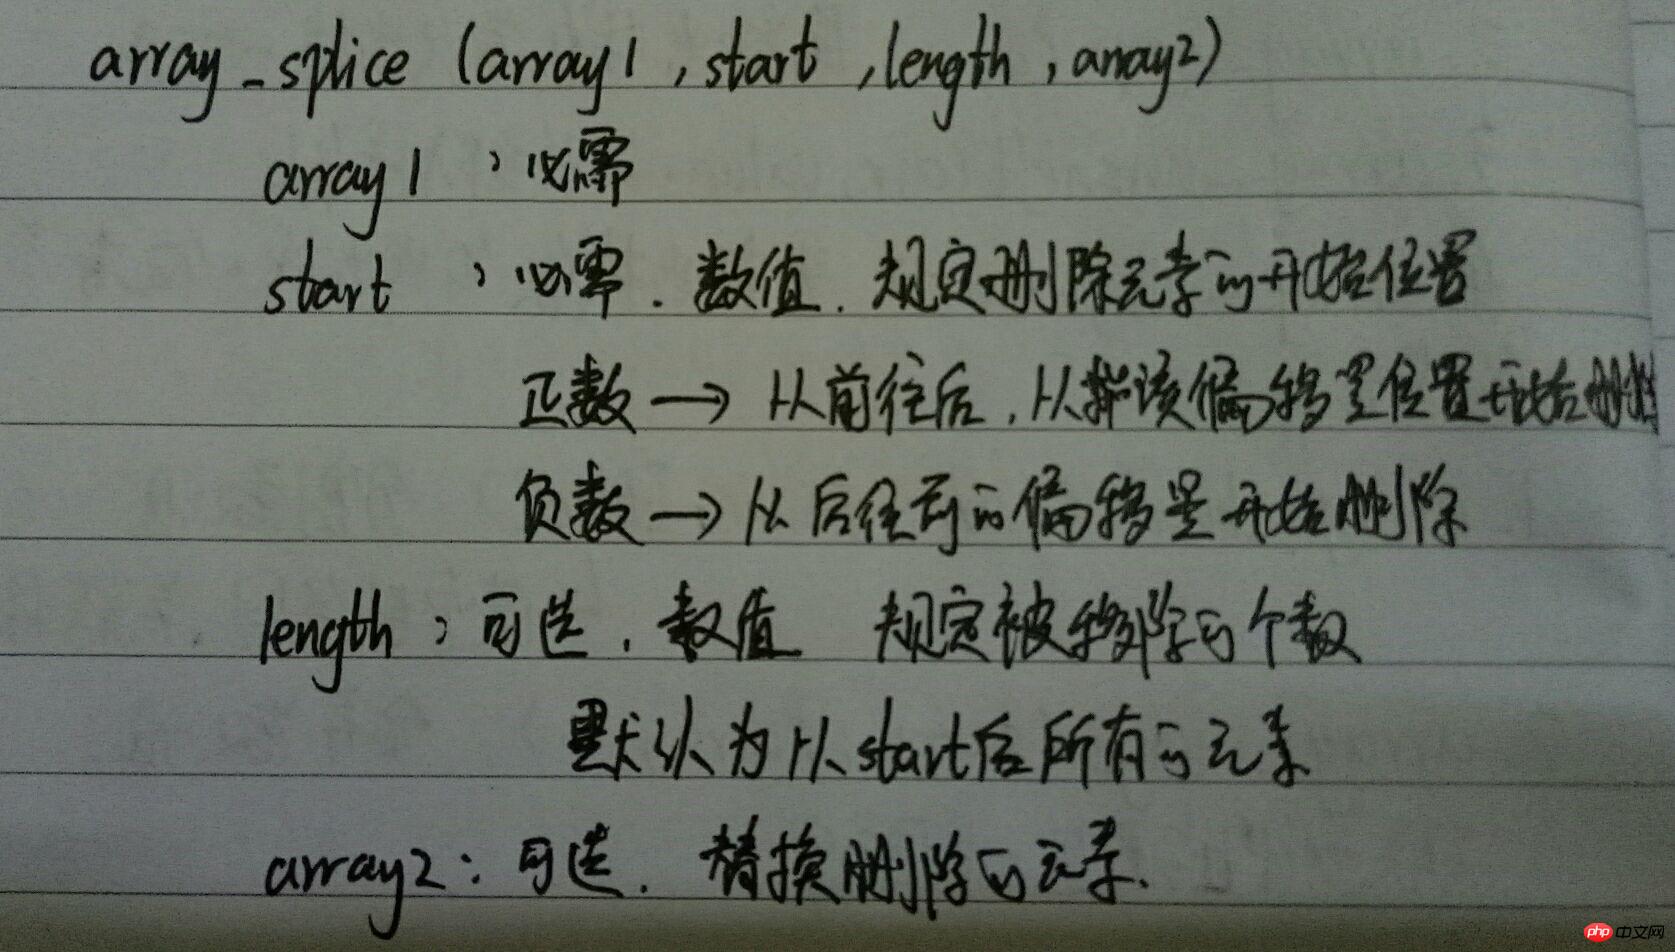 array_splice (array1 ,start ,length ,array2)
array1 : 必需
start : 必需. 数值. 规定删除元素的开始位置
正数 → 从前往后, 从该偏移量位置开始删除
负数 → 从后往前的偏移量开始删除
length : 可选. 数值 规定被移除的个数
默认为从start后所有的元素
array2: 可选. 替换删除的元素.
php中文网